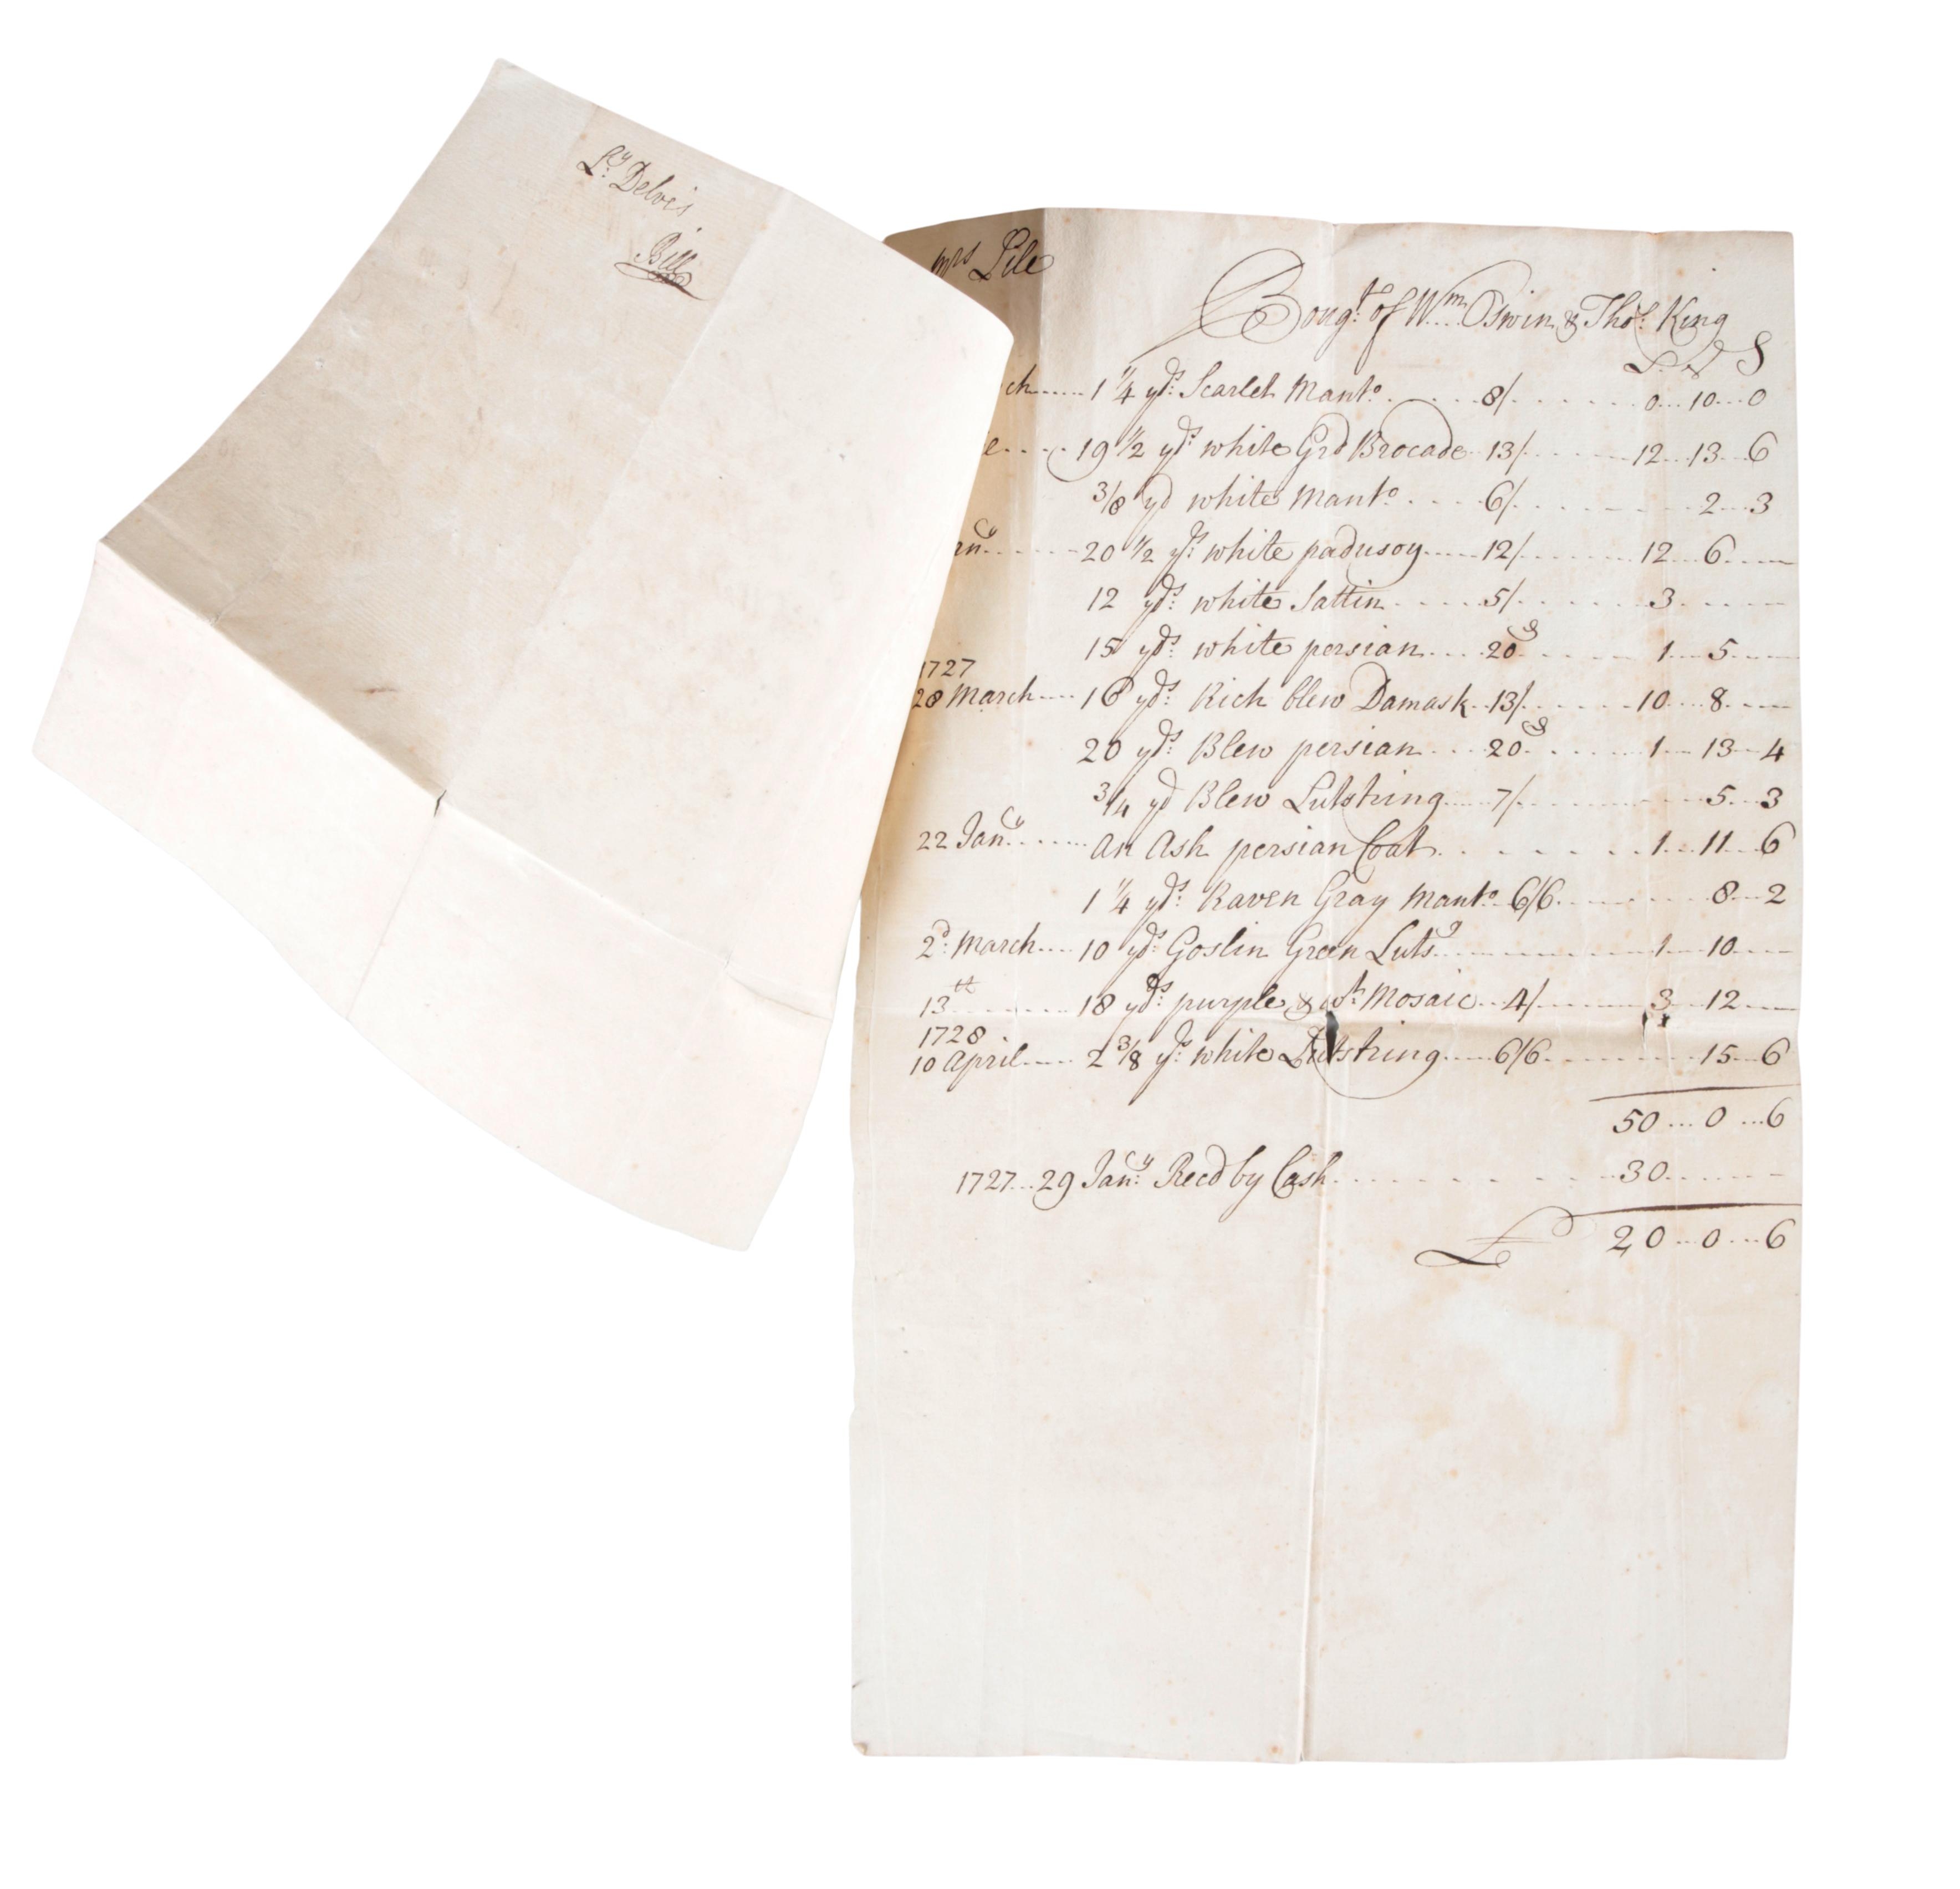 Ly: Delvis
Bill
Mrs Pile
Bougt: of Wm Oswin & Thos: King
ch 1 1/4 yds: Scarlet Manto 8/ 0 10 0
e 19 1/2 yds: white Grd Brocade 13/ 12 13 6
3/8 yd white Manto 6/ 2 3
20 1/2 yds: white padusoy 12/ 12 6
12 yds: white Sattin 5/ 3
15 yds: white persian 20d 1 5
1727
28 March 16 yds: Rich blew Damask 13/ 10 8
20 yds: Blew persian 20d 1 13 4
3/4 yd Blew Lutstring 7/ 5 3
22 Jany: An Ash persian Coat 1 11 6
1 1/4 yds: Raven Gray Manto 6/6 8 2
2d: March 10 yds: Goslin Green Lutsg 1 10
13th 18 yds: purple & wt: Mosaic 4/ 3 12
1728
10 April 2 3/8 yds: white Lutstring 6/6 15 6
50 0 6
1727 29 Jany: Recd by Cash 30
£ 20 0 6